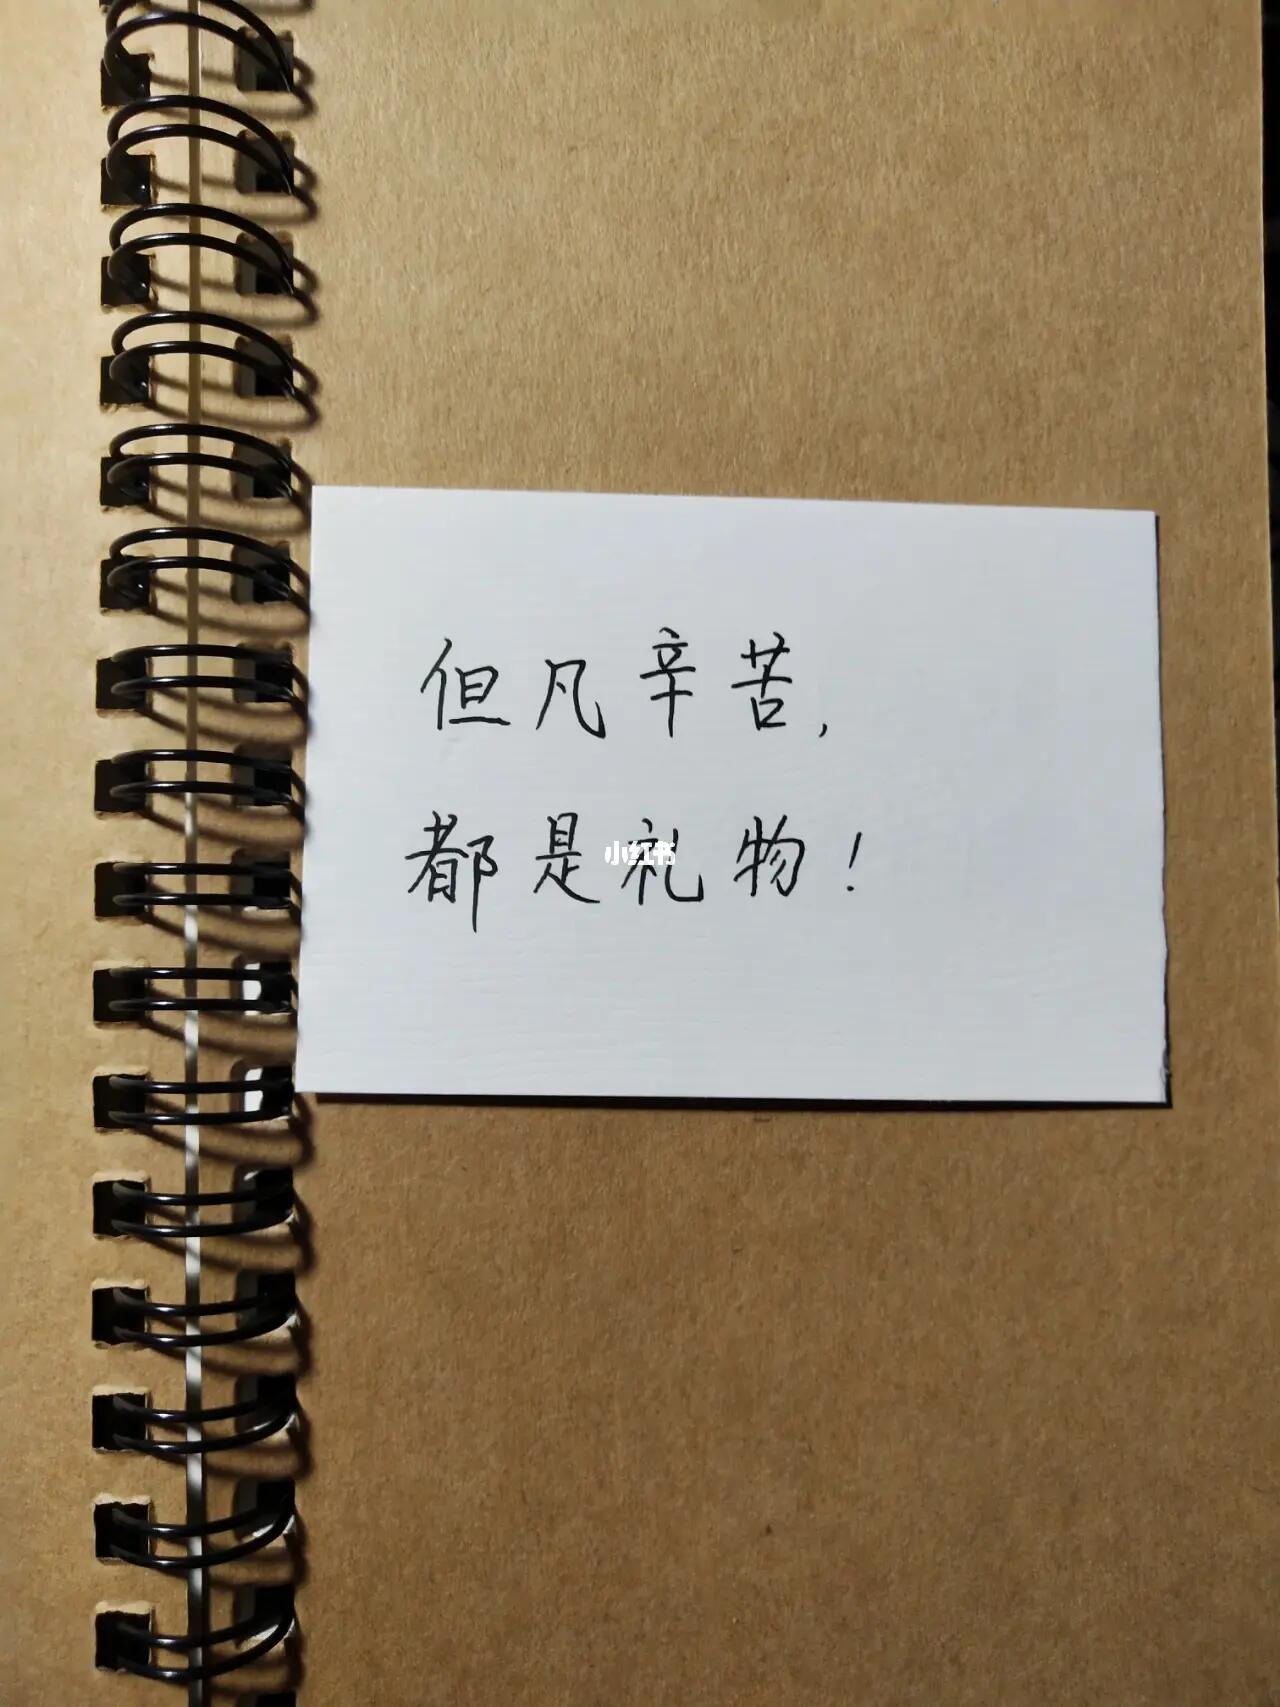 但凡辛苦,
都是礼物!
小红书